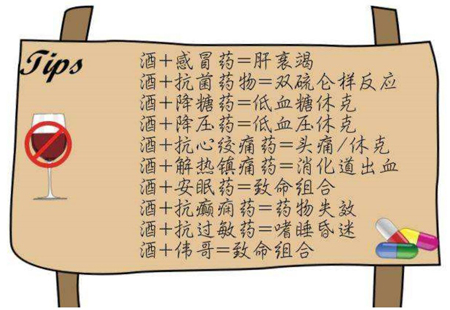 Tips
酒+感冒药=肝衰竭
酒+抗菌药物=双硫仑样反应
酒+降糖药=低血糖休克
酒+降压药=低血压休克
酒+抗心绞痛药=头痛/休克
酒+解热镇痛药=消化道出血
酒+安眠药=致命组合
酒+抗癫痫药=药物失效
酒+抗过敏药=嗜睡昏迷
酒+伟哥=致命组合